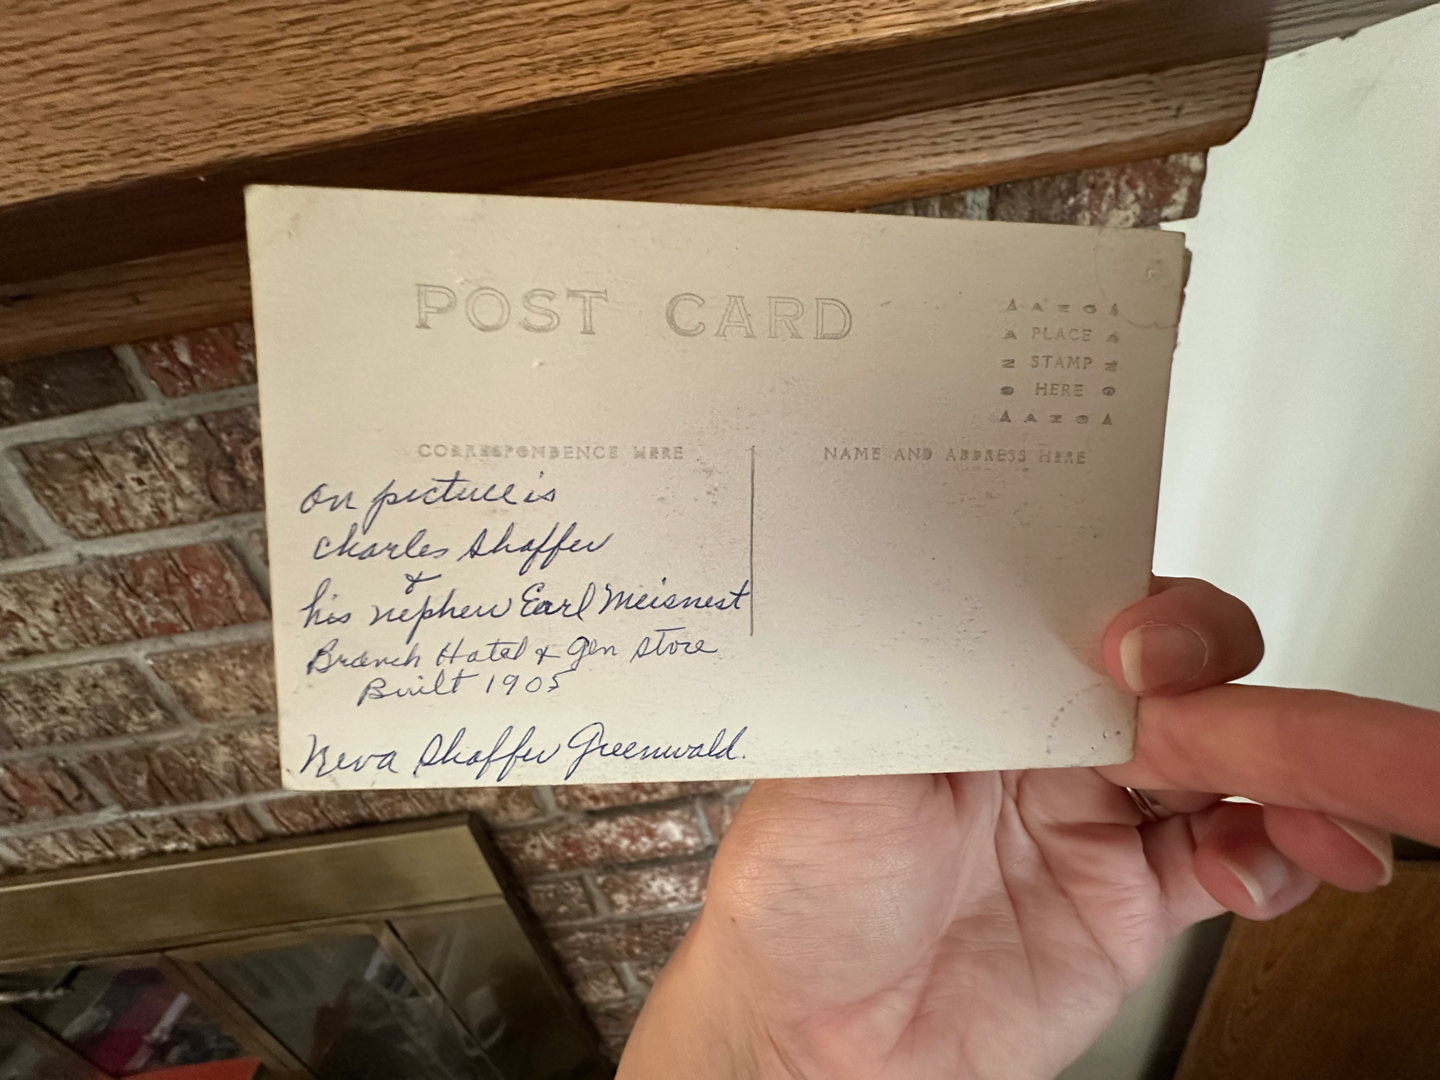 POST CARD
PLACE
STAMP
HERE
CORRESPONDENCE HERE
NAME AND ADDRESS HERE
On picture is
Charles Shaffer
&
his nephew Earl Meisnest
Branch Hotel & Gen Store
Built 1905
Neva Shaffer Greenwald.